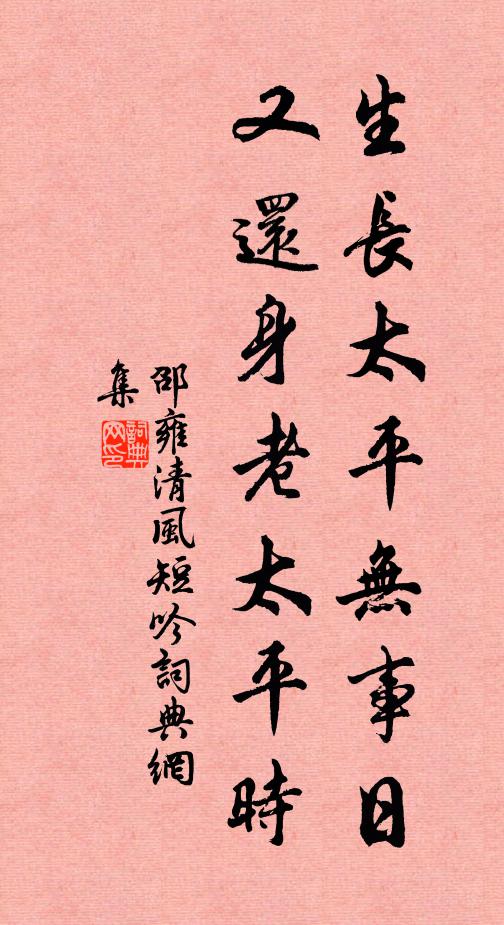 生長太平無事日
又還身老太平時
邵雍清風短吟詞典網
集
詞典網印